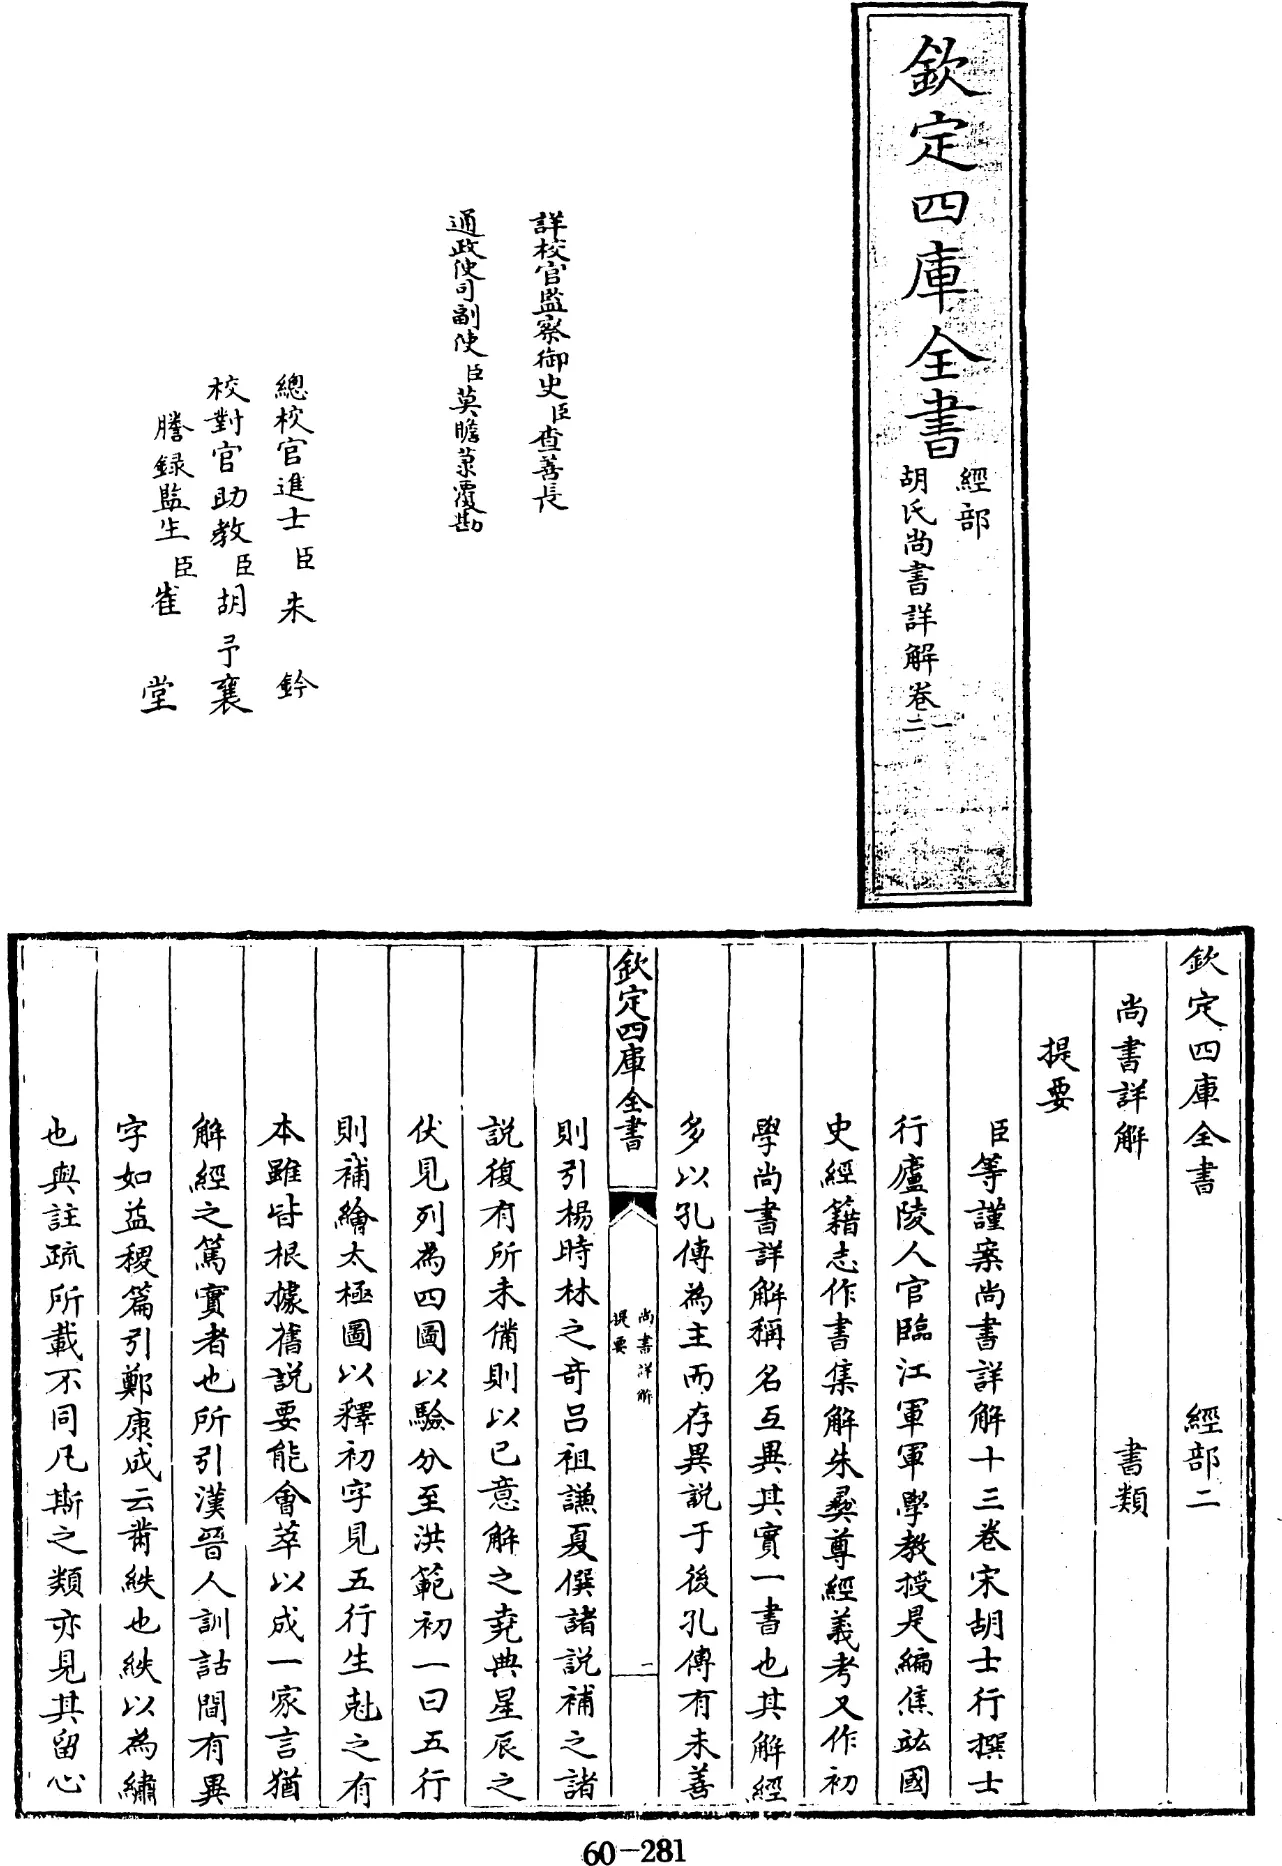 欽定四庫全書
經部
胡氏尚書詳解卷一
二
詳校官監察御史臣查善長
通政使司副使臣莫瞻菉覆勘
總校官進士臣朱鈐
校對官助教臣胡予襄
謄録監生臣崔堂
欽定四庫全書 經部二
尚書詳解 書類
提要
臣等謹案尚書詳解十三卷宋胡士行撰士
行廬陵人官臨江軍軍學教授是編焦竑國
史經籍志作書集解朱彞尊經義考又作初
學尚書詳解稱名互異其實一書也其解經
多以孔傳為主而存異説于後孔傳有未善
欽定四庫全書
尚書詳解
提要
二
則引楊時林之奇吕祖謙夏僎諸説補之諸
説復有所未備則以己意解之堯典星辰之
伏見列為四圖以驗分至洪範初一曰五行
則補繪太極圖以釋初字見五行生尅之有
本雖皆根據舊説要能會萃以成一家言猶
解經之篤實者也所引漢晉人訓詁間有異
字如益稷篇引鄭康成云黹紩也紩以為繡
也與註疏所載不同凡斯之類亦見其留心
60-281